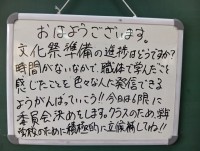 おはようございます。
文化祭準備の進捗はどうですか?
時間がないなかで、職体で学んだこと
感じたことを色々な人に発信できる
ようがんばっていこう!!今日は6限に
委員会決めをします。クラスのため、学年
学校のために積極的に立候補してね!!